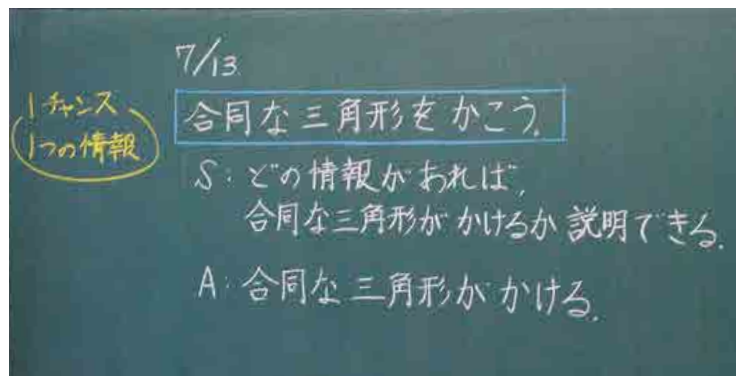 7/13
1チャンス
1つの情報
合同な三角形をかこう。
S:どの情報があれば,
合同な三角形がかけるか説明できる。
A:合同な三角形がかける。